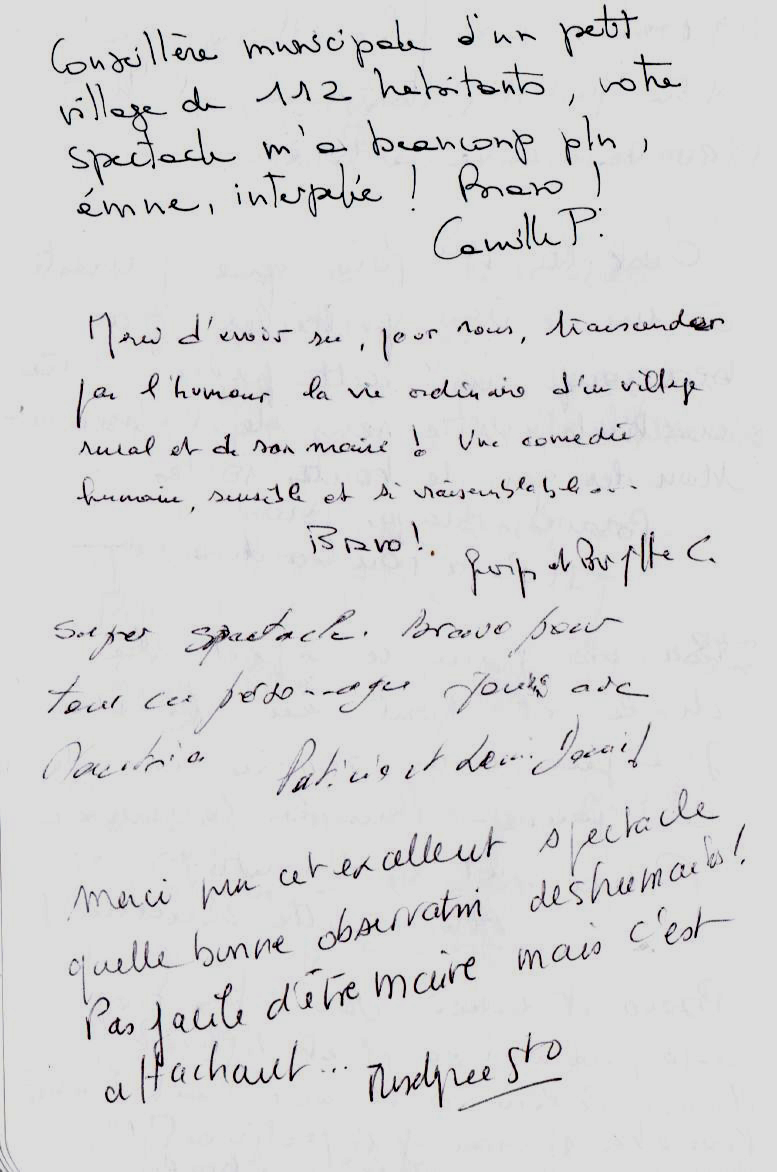 Conseillère municipale d'un petit
village de 112 habitants, votre
spectacle m'a beaucoup plu,
émue, interpelée ! Bravo !
Camille P.
Merci d'avoir su, pour nous, transcender
par l'humour la vie ordinaire d'un village
rural et de son maire ! Une comédie
humaine, sensible et si vraisemblable...
Bravo !. 
et Brigitte C.
Super spectacle. Bravo pour
tous ces personnages joués avec
Patricia et
Merci pour cet excellent spectacle
quelle bonne observation des humains !
Pas facile d'être maire mais c'est
attachant...